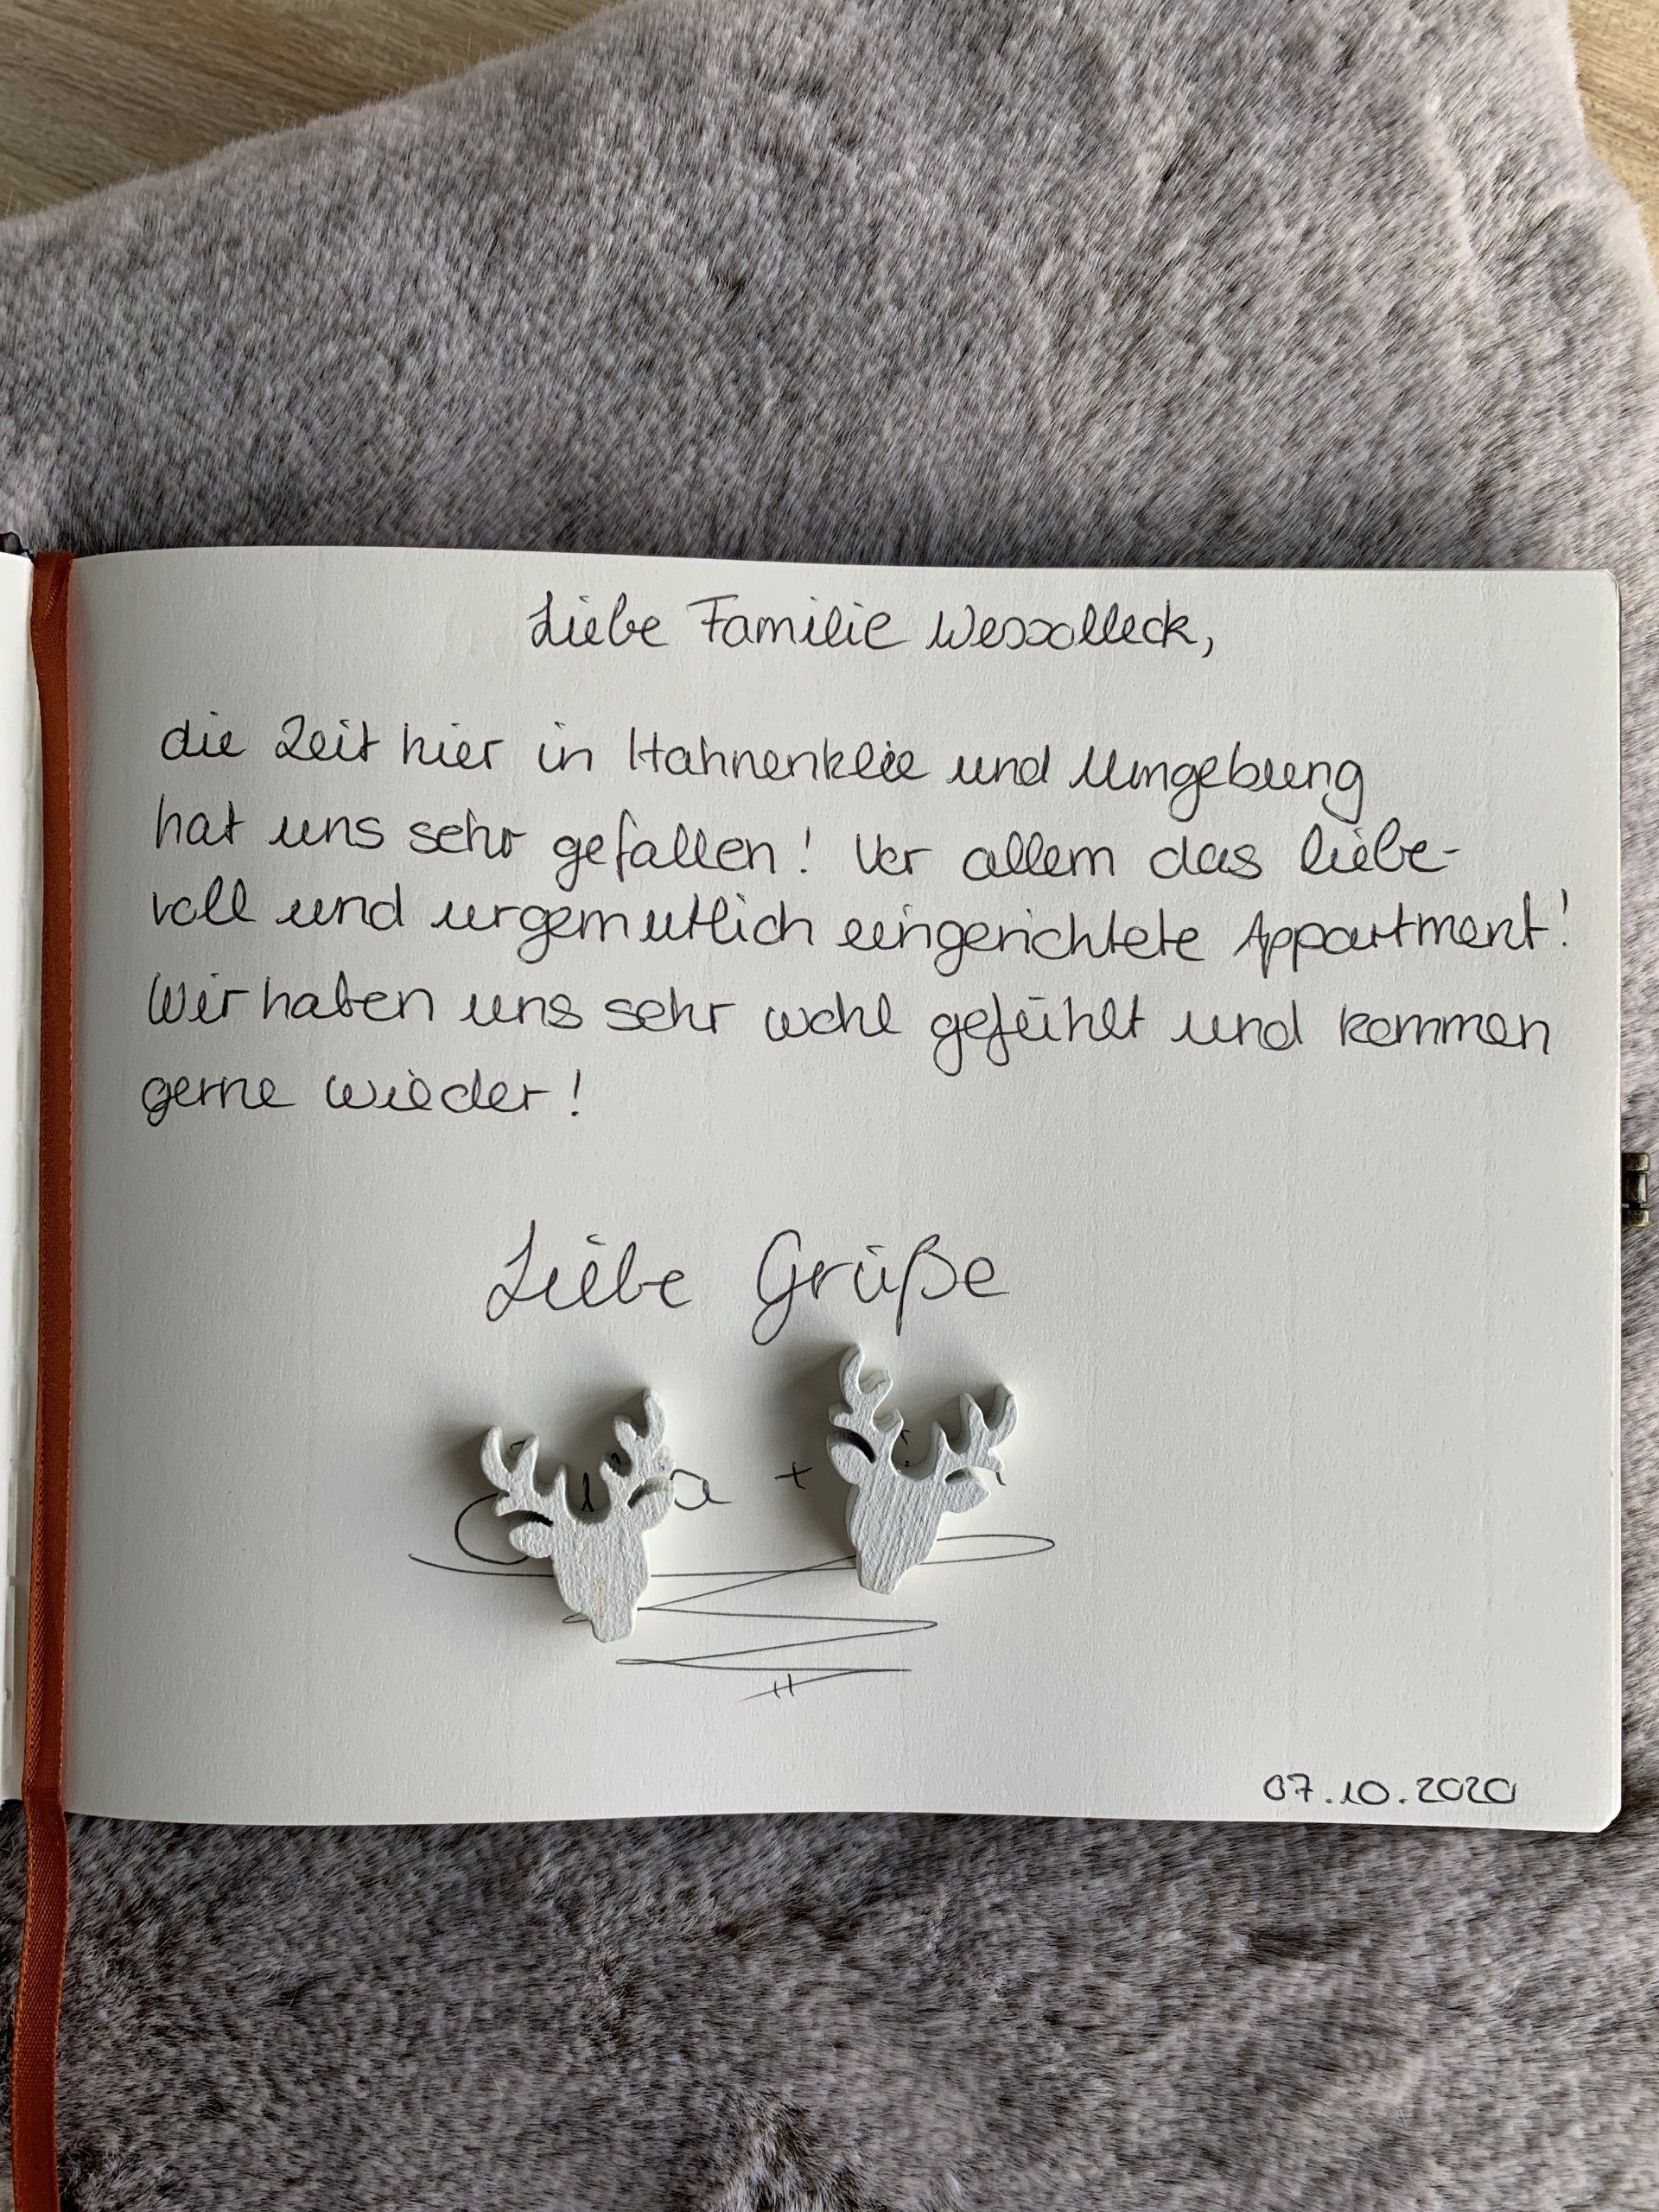 Liebe Familie Wessolleck,
die Zeit hier in Hahnenklee und Umgebung
hat uns sehr gefallen! Vor allem das liebe-
voll und urgemütlich eingerichtete Appartment!
Wir haben uns sehr wohl gefühlt und kommen
gerne wieder!
Liebe Grüße
+
07.10.2020